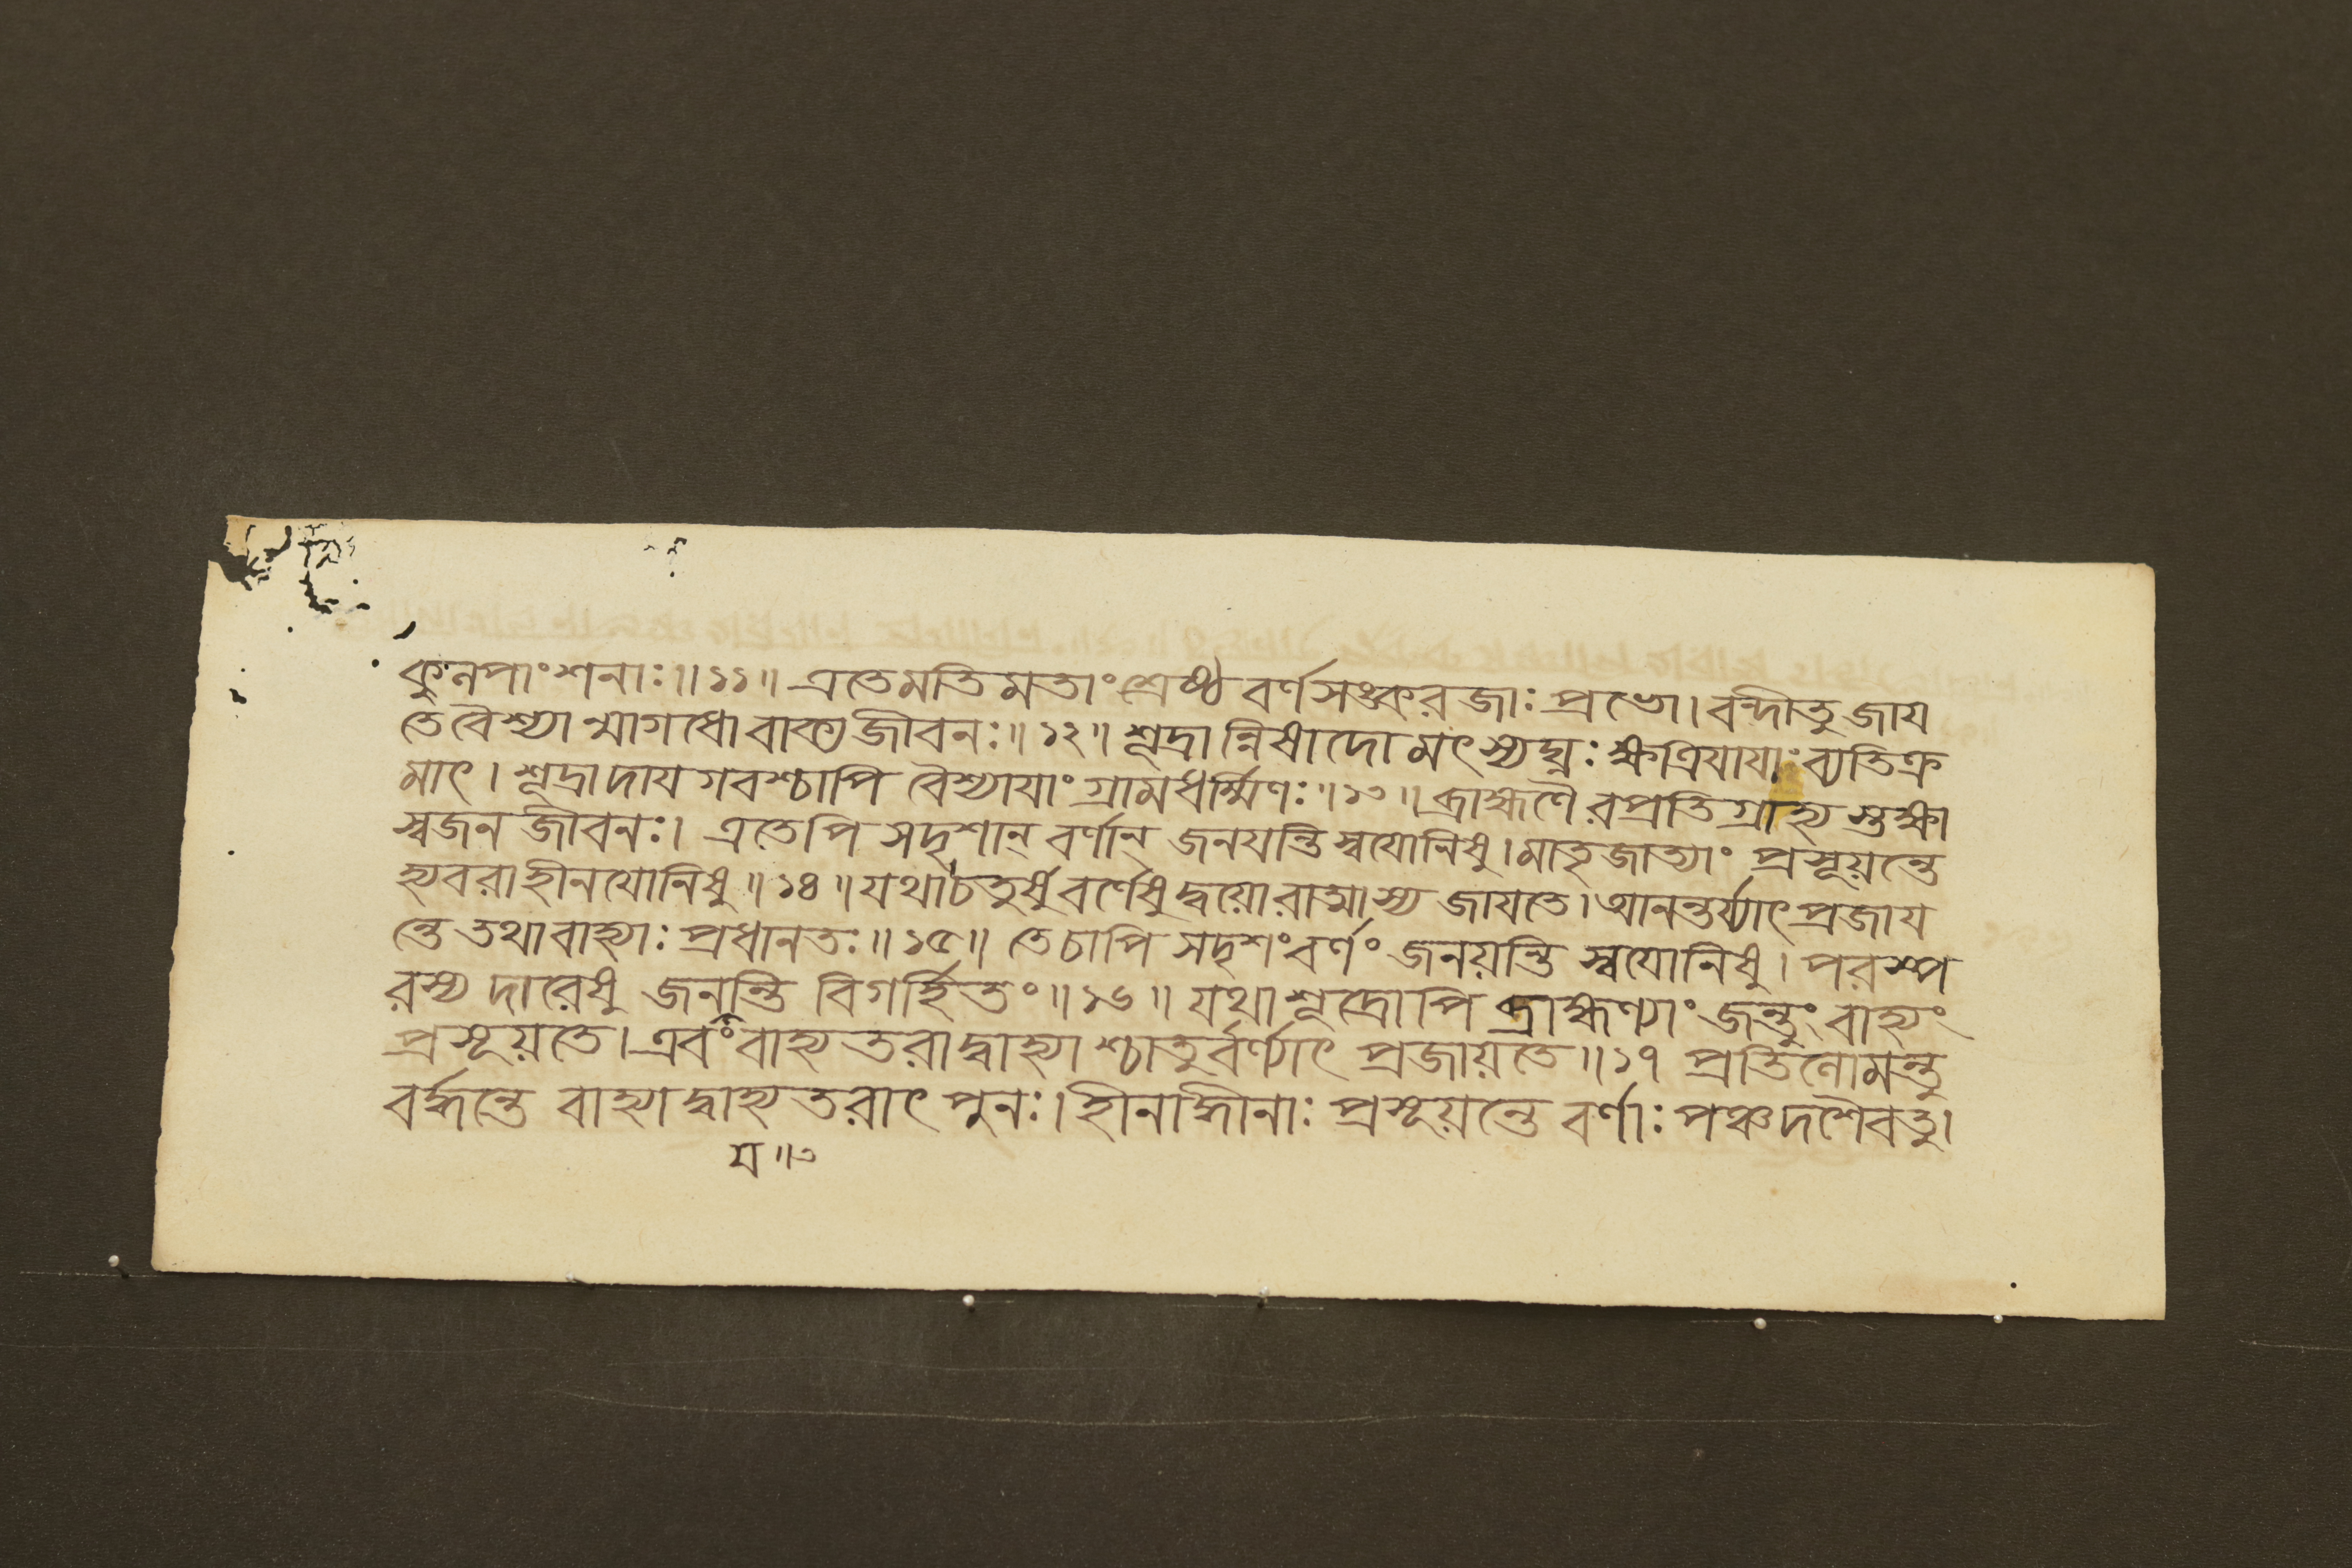 কুনপাংশনাঃ॥১১॥ এতেমতিমতাং শ্রেষ্ঠ বর্ণসঙ্করজাঃ প্রভো। বন্দীতু জায
তে বৈশ্যা ন্মাগধো বাক্য জীবনঃ॥১২॥ শূদ্রান্নিষাদো মৎস্যঘ্নঃ ক্ষত্রিযাযাং ব্যতিক্র
মাৎ। শূদ্রাদাযগবশ্চাপি বৈশ্যাযাং গ্রামধর্ম্মিণঃ॥১৩॥ ব্রাহ্মণৈরপ্রতিগ্রাহ্য স্তক্ষা
স্বজন জীবনঃ। এতেপি সদৃশান্ বর্ণান্ জনযন্তি স্বযোনিষু। মাতৃজাত্যাং প্রসূয়ন্তে
হ্যবরাহীনযোনিষু॥১৪॥ যথাচতুর্ষু বর্ণেষু দ্বয়োরাত্মাস্য জাযতে। আনন্তর্য্যাৎ প্রজায
ন্তে তথাবাহ্যাঃ প্রধানতঃ॥১৫॥ তেচাপি সদৃশং বর্ণং জনয়ন্তি স্বযোনিষু। পরস্প
রস্য দারেষু জনন্তি বিগর্হিতং॥১৬॥ যথা শূদ্রোপি ব্রাহ্মণ্যাং জন্তুং বাহ্যং
প্রসূয়তে। এবং বাহ্যতরাদ্বাহ্যা শ্চাতুর্বর্ণ্যাৎ প্রজায়তে॥১৭ প্রতিনোমন্তু
বর্দ্ধন্তে বাহ্যাদ্বাহ্যতরাৎ পুনঃ। হীনাদ্ধীনাঃ প্রসূয়ন্তে বর্ণাঃ পঞ্চদশৈবতু।
য॥৩